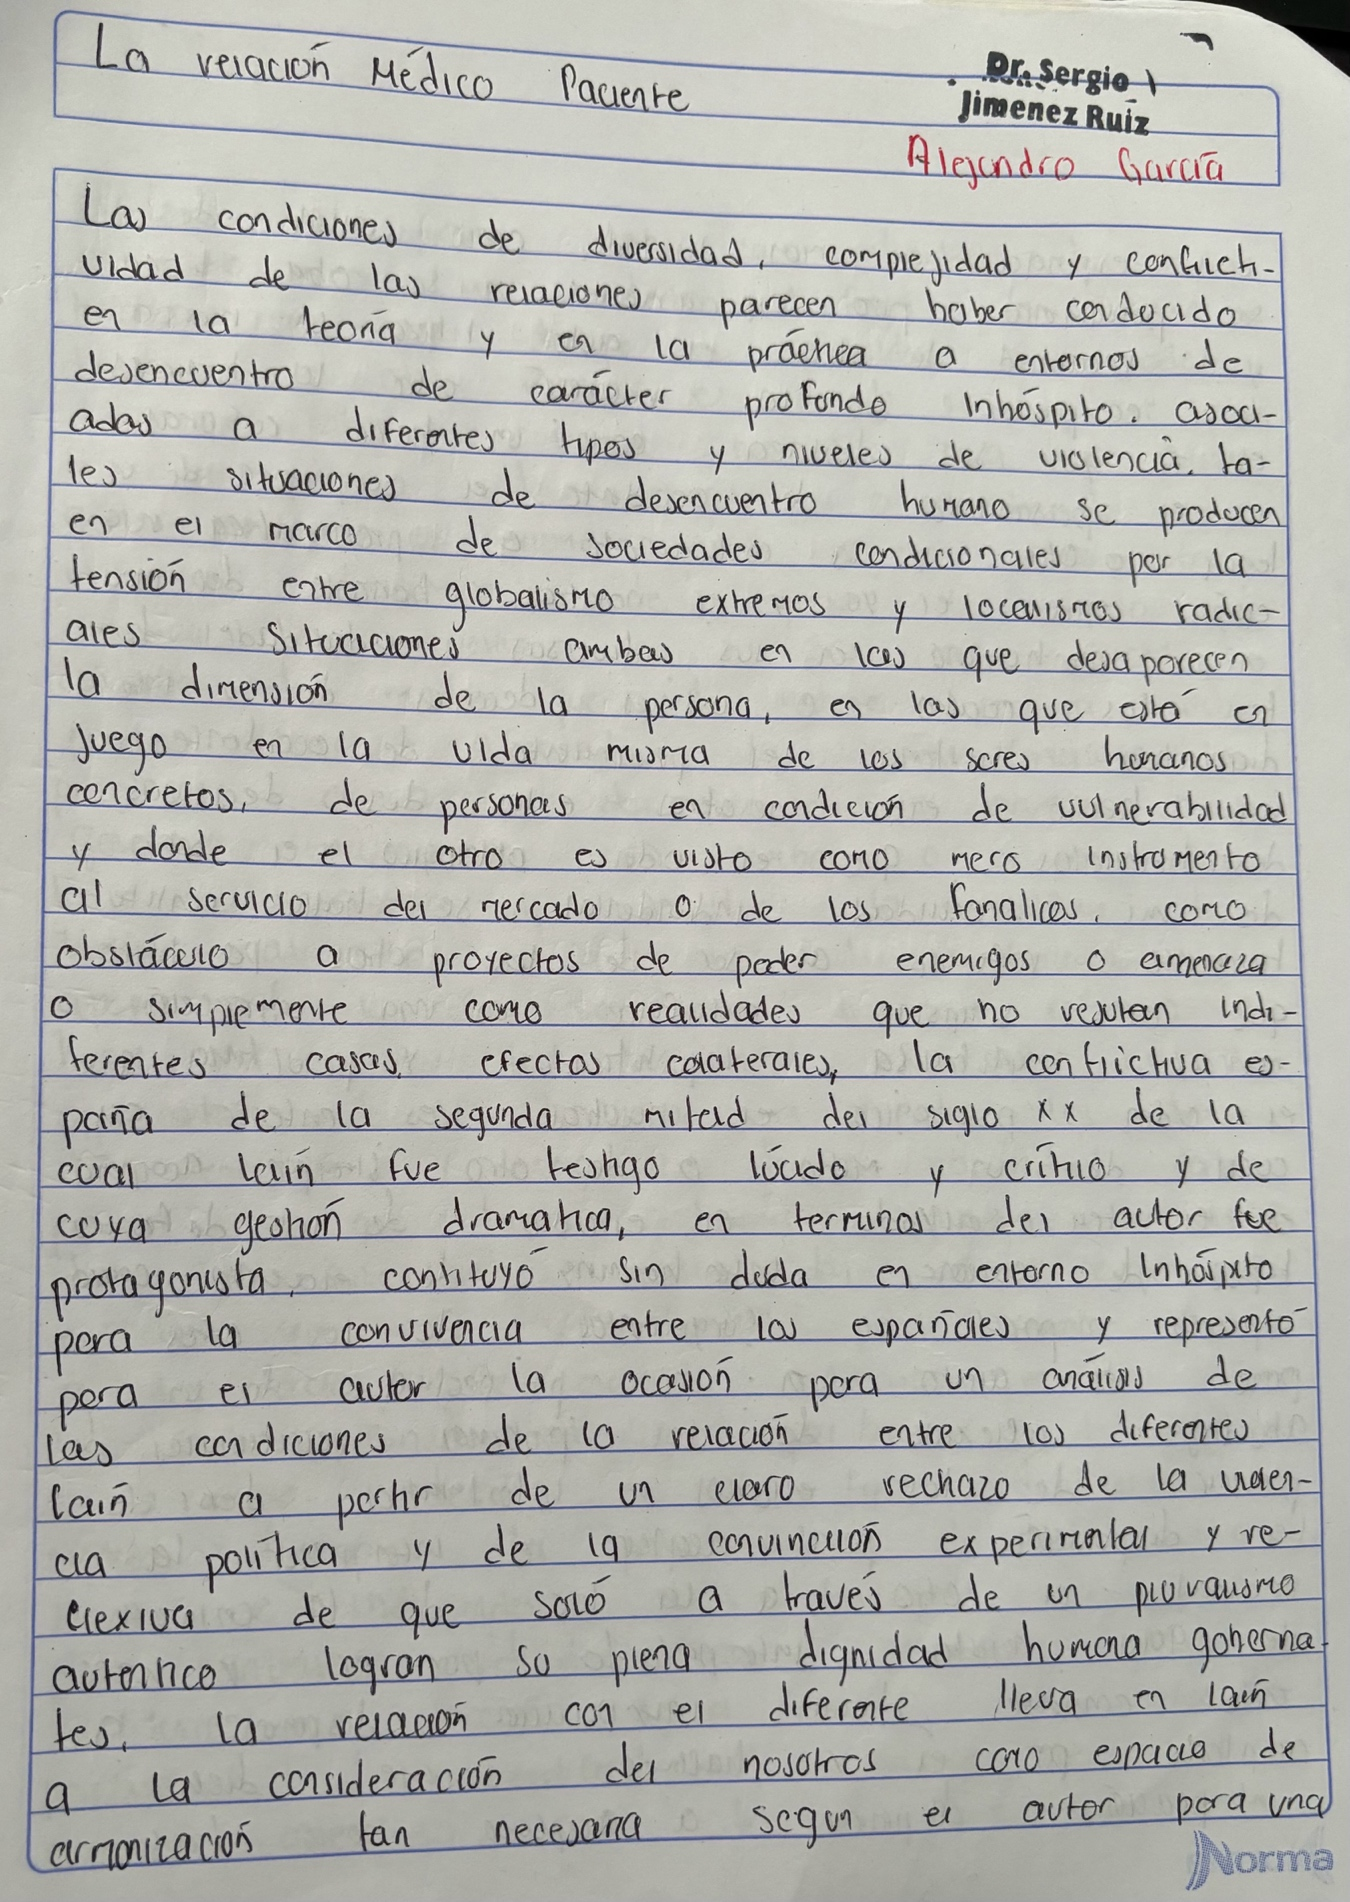 La relación Médico Paciente
Dr. Sergio
Jimenez Ruiz
Alejandro García
Las condiciones de diversidad, complejidad y conflicti-
vidad de las relaciones parecen haber conducido
en la teoria y en la práctica a entornos de
desencuentro de carácter profundo inhóspito. asoci-
adas a diferentes tipos y niveles de violencia. ta-
les situaciones de desencuentro humano se producen
en el marco de sociedades condicionales por la
tensión entre globalismo extremos y localismos radic-
ales situaciones ambas en las que desaparecen
la dimensión de la persona, en las que está en
juego en la vida misma de los seres humanos
concretos, de personas en condición de vulnerabilidad
y donde el otro es visto como mero instrumento
al servicio del mercado o de los fanaticos. como
obstáculo a proyectos de poder enemigos o amenaza
o simplemente como realidades que no resultan indi-
ferentes casas, efectos colaterales, la conflictiva es-
paña de la segunda mitad del siglo xx de la
cual laín fue testigo lúcido y crítico y de
cuya gestión dramatica, en terminos del autor fue
protagonista, contituyó sin duda en entorno inhóspito
para la convivencia entre los españoles y representó
para el autor la ocasión para un análisis de
las condiciones de la relación entre los diferentes
laín a partir de un claro rechazo de la
cia política y de la convincción experimental y re-
flexiva de que soló a través de un pluralismo
autentico logran su plena dignidad humana goberna
tes, la relación con el diferente lleva en laín
a la consideración del nosotros como espacio de
armonización tan necesaria segun el autor para una
Norma